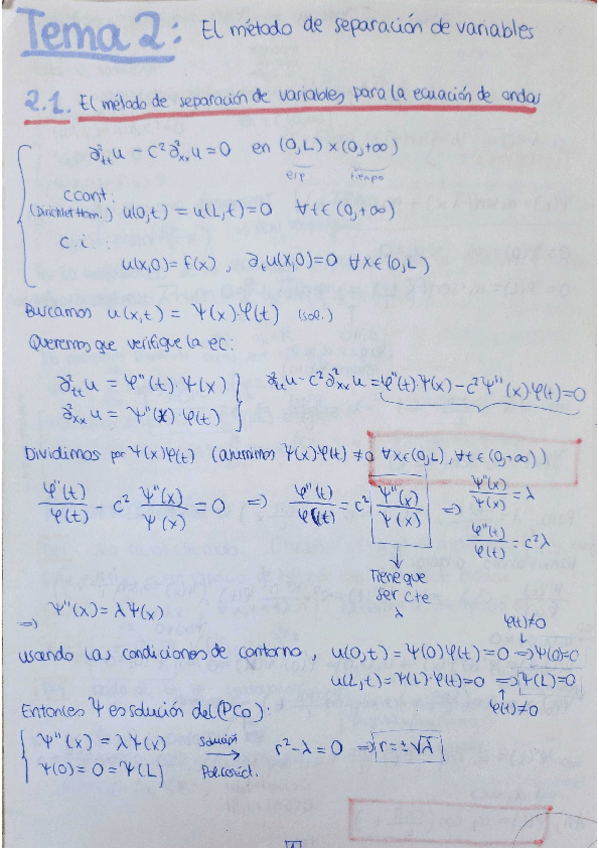 Tema 2: El método de separación de variables
2.1. El método de separación de variables para la ecuación de ondas
∂²ₜₜu - c²∂²ₓₓu = 0 en (0,L) × (0,+∞)
esp. tiempo
c.cont.
(Dirichlet Hom.) u(0,t) = u(L,t) = 0 ∀t∈(0,+∞)
c.i.
u(x,0) = f(x), ∂ₜu(x,0) = 0 ∀x∈(0,L)
Buscamos u(x,t) = Ψ(x)·φ(t) (sol.)
Queremos que verifique la ec:
∂²ₜₜu = φ''(t)·Ψ(x) ∂²ₜₜu - c²∂²ₓₓu = φ''(t)·Ψ(x) - c²Ψ''(x)·φ(t) = 0
∂²ₓₓu = Ψ''(x)·φ(t)
Dividimos por Ψ(x)φ(t) (asumimos Ψ(x)φ(t) ≠ 0 ∀x∈(0,L), ∀t∈(0,+∞))
φ''(t)/φ(t) - c² Ψ''(x)/Ψ(x) = 0 ⇒ φ''(t)/φ(t) = c² Ψ''(x)/Ψ(x) ⇒ Ψ''(x)/Ψ(x) = λ
φ''(t)/φ(t) = c²λ
Tiene que
ser cte
λ
⇒ Ψ''(x) = λΨ(x)
φ(t)≠0
usando las condiciones de contorno, u(0,t) = Ψ(0)φ(t) = 0 ⇒ Ψ(0)=0
u(L,t) = Ψ(L)·φ(t) = 0 ⇒ Ψ(L)=0
φ(t)≠0
Entonces Ψ es solución del (PCo):
Ψ''(x) = λΨ(x) Solución → r² - λ = 0 ⇒ r = ±√λ
Ψ(0) = 0 = Ψ(L) Pol. caract.